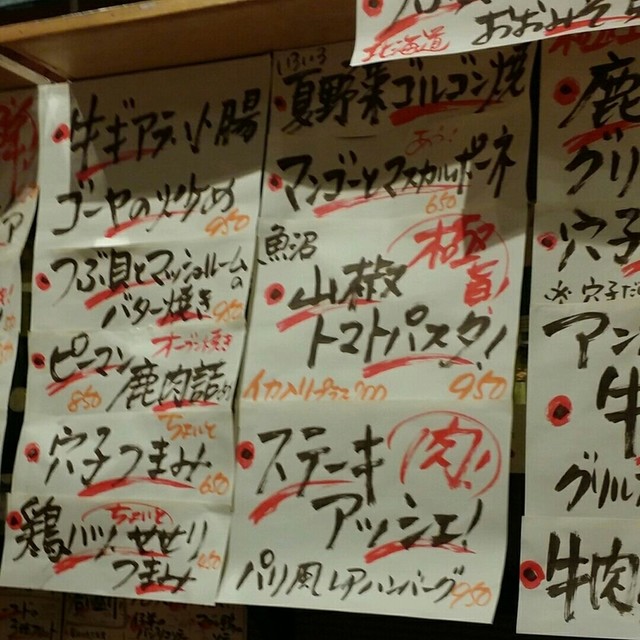 おおみぞ
北海道
牛ギアラ、小腸
ゴーヤの炒め
950
つぶ貝とマッシュルームの
バター焼き
950
オーブン焼き
ピーマン
鹿肉詰め
850
ちょいと
穴子つまみ
650
ちょいと
鶏ハツ、せせり
つまみ
夏野菜ゴルゴン焼
マンゴーとマスカルポーネ
650
極旨!
魚沼
山椒
トマトパスタ!
950
肉!
ステーキ
アッシェ!
パリ風レアハンバーグ
950
鹿
グリ
穴子
※穴子だ
アン
牛
グリル
牛肉